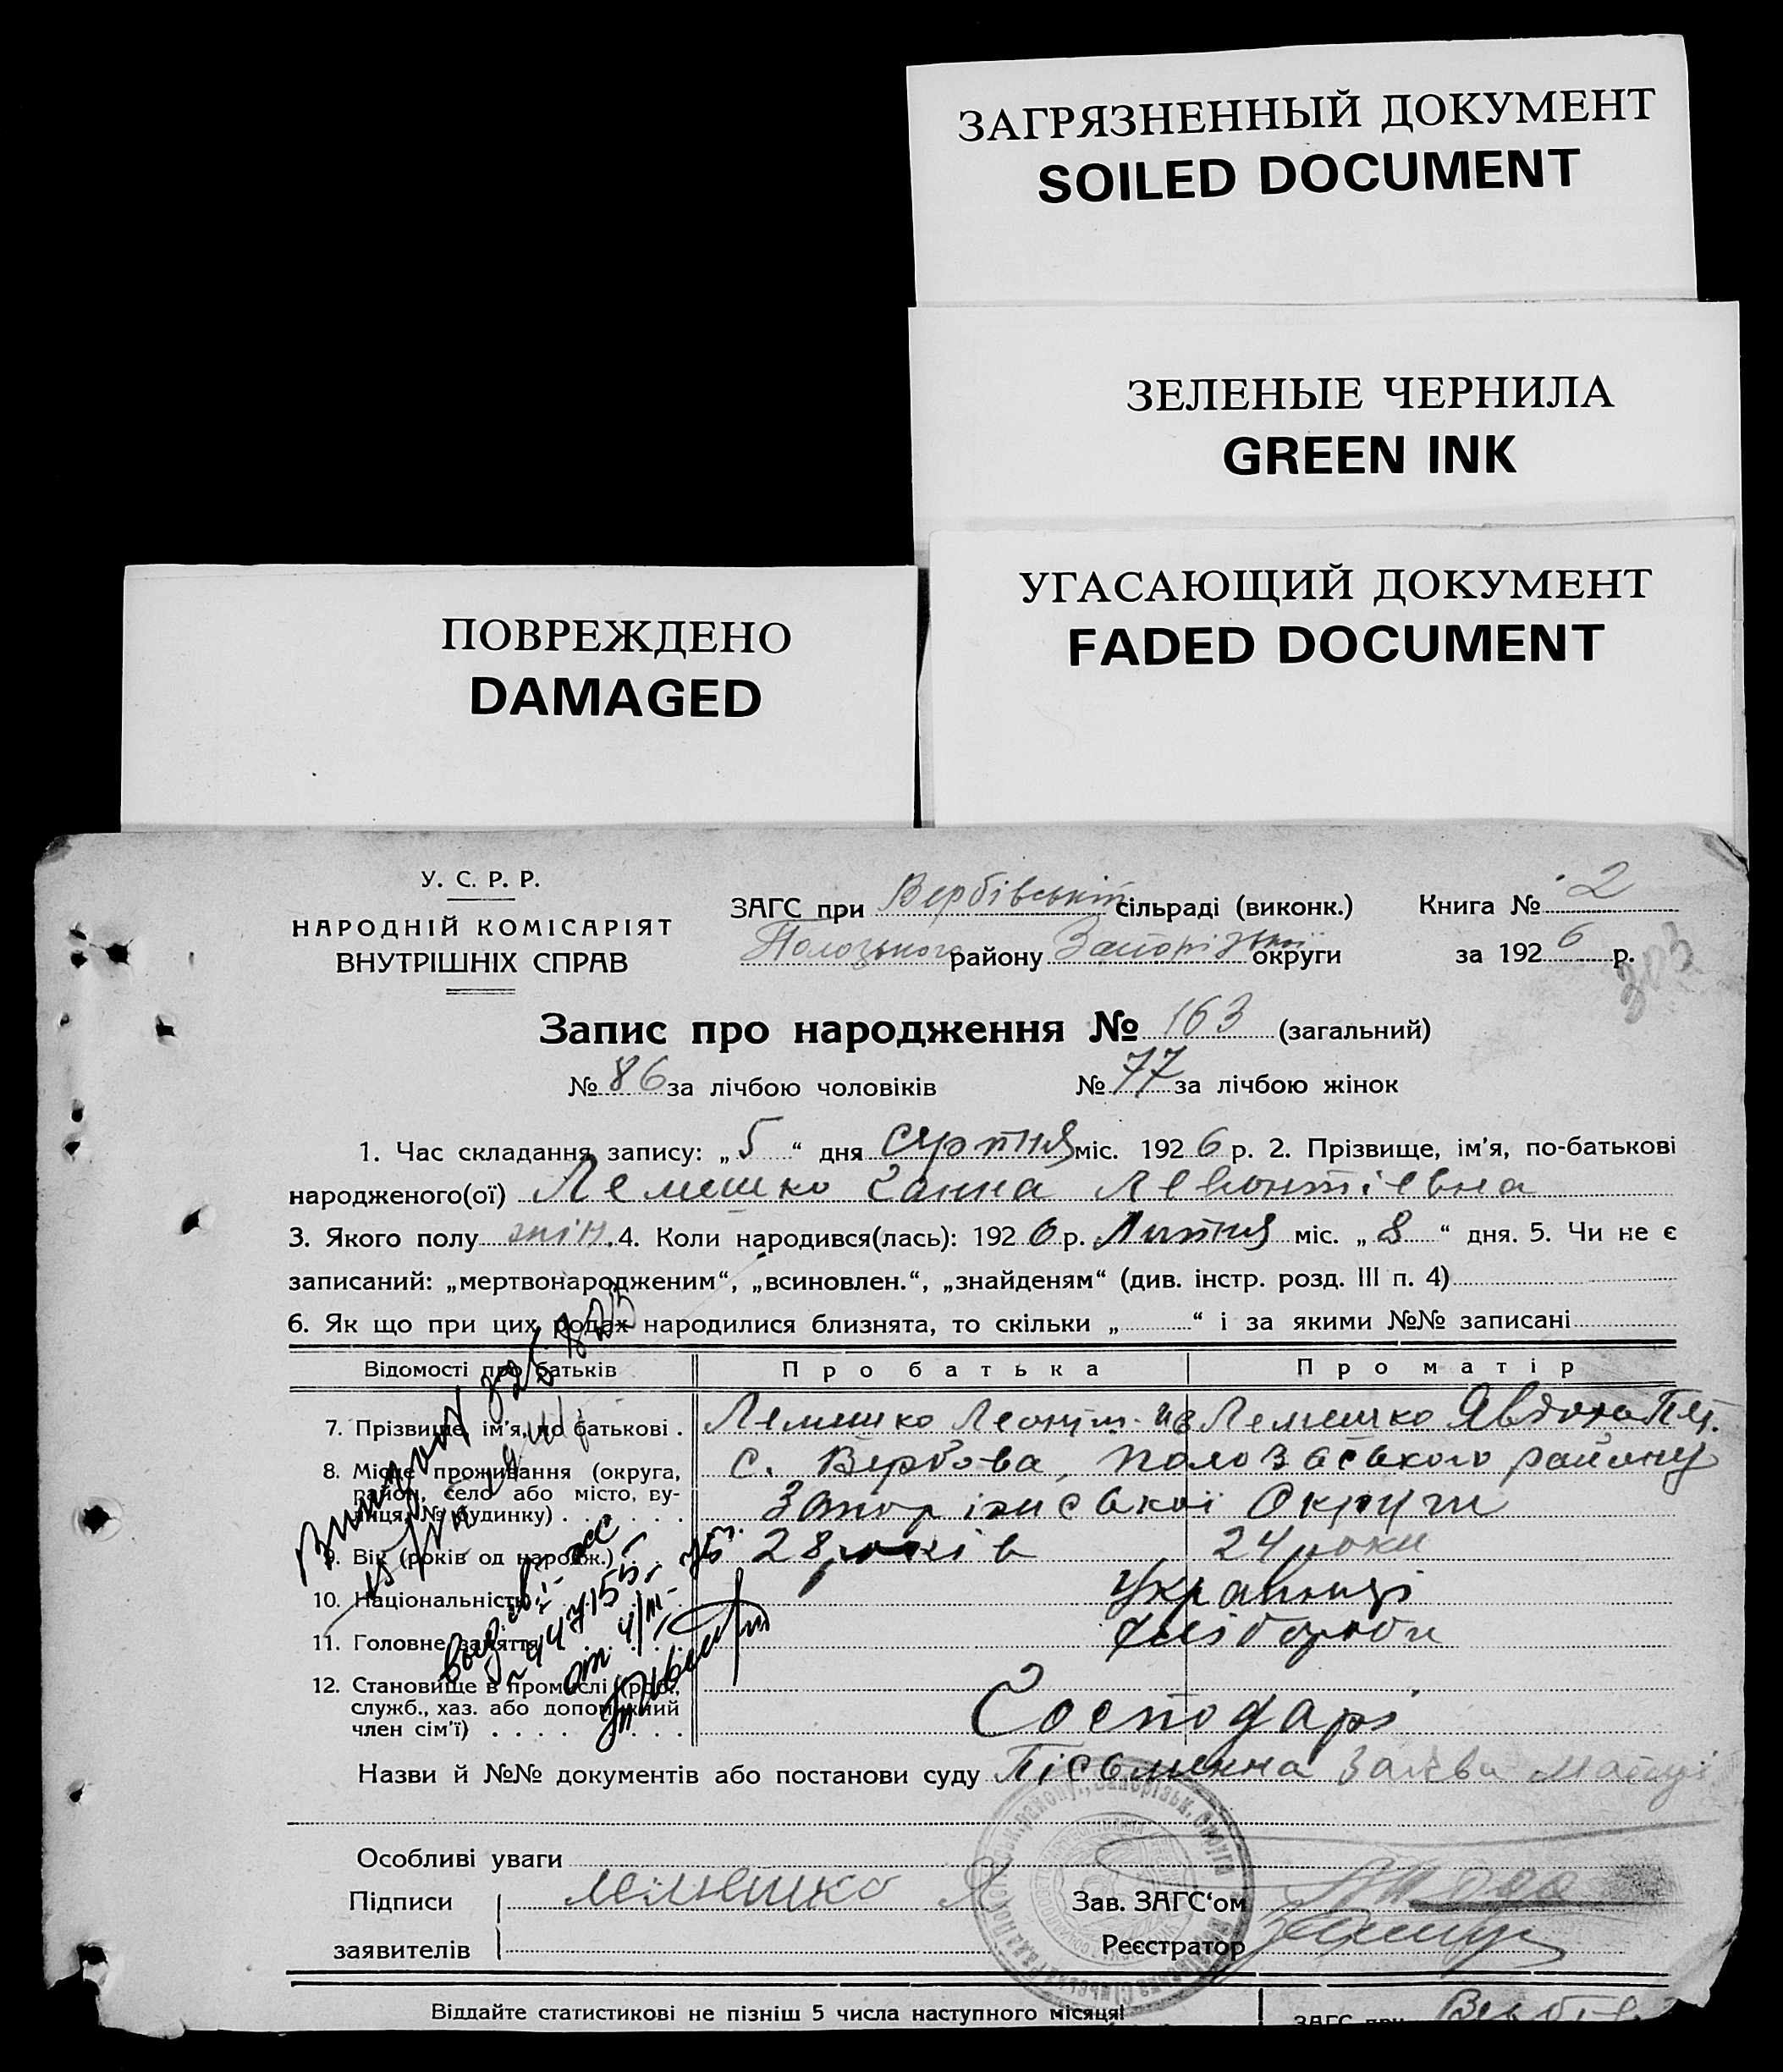 ЗАГРЯЗНЕННЫЙ ДОКУМЕНТ
SOILED DOCUMENT
ЗЕЛЕНЫЕ ЧЕРНИЛА
GREEN INK
УГАСАЮЩИЙ ДОКУМЕНТ
FADED DOCUMENT
ПОВРЕЖДЕНО
DAMAGED
У. С. Р. Р.
НАРОДНІЙ КОМІСАРІЯТ
ВНУТРІШНІХ СПРАВ
ЗАГС при Вербівській сільраді (виконк.) Книга № 2
Полозького району Запорізької округи за 1926 р.
303
Запис про народження № 163 (загальний)
№ 86 за лічбою чоловіків № 77 за лічбою жінок
1. Час складання запису: „5“ дня серпня міс. 1926 р. 2. Прізвище, ім'я, по-батькові
народженого(ої) Лемешко Ганна Левонтіевна
3. Якого полу жін. 4. Коли народився(лась): 1926 р. Липня міс. „8“ дня. 5. Чи не є
записаний: „мертвонародженим“, „всиновлен.“, „знайденям“ (див. інстр. розд. III п. 4)
6. Як що при цих родах народилися близнята, то скільки „ “ і за якими №№ записані
Відомості про батьків Про батька Про матір
7. Прізвище, ім'я, по батькові . Лемешко Леонт. Ів Лемешко Явдоха Пет.
8. Місце проживання (округа, район, село або місто, вулиця, № будинку) . . . . . .
с. Вербова, Полозаського району
Запоріжської Округи
9. Вік (років од народж.) 28 років 24 роки
10. Національність Українці
11. Головне заняття Хлібороби
12. Становище в промислі (роб., служб., хаз. або допоміжний член сім'ї) . . . . Господарі
Назви й №№ документів або постанови суду Пісьменна Заява Матері
Особливі уваги
Підписи Лемешко Я Зав. ЗАГС‘ом
заявителів Реєстратор
Віддайте статистикові не пізніш 5 числа наступного місяця!
ЗАГС при Вербів